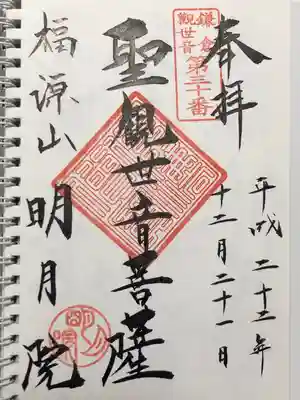 奉拝
平成二十二年
十二月二十一日
鎌倉
觀世音
第三十番
聖觀世音菩薩
福源山
明月院